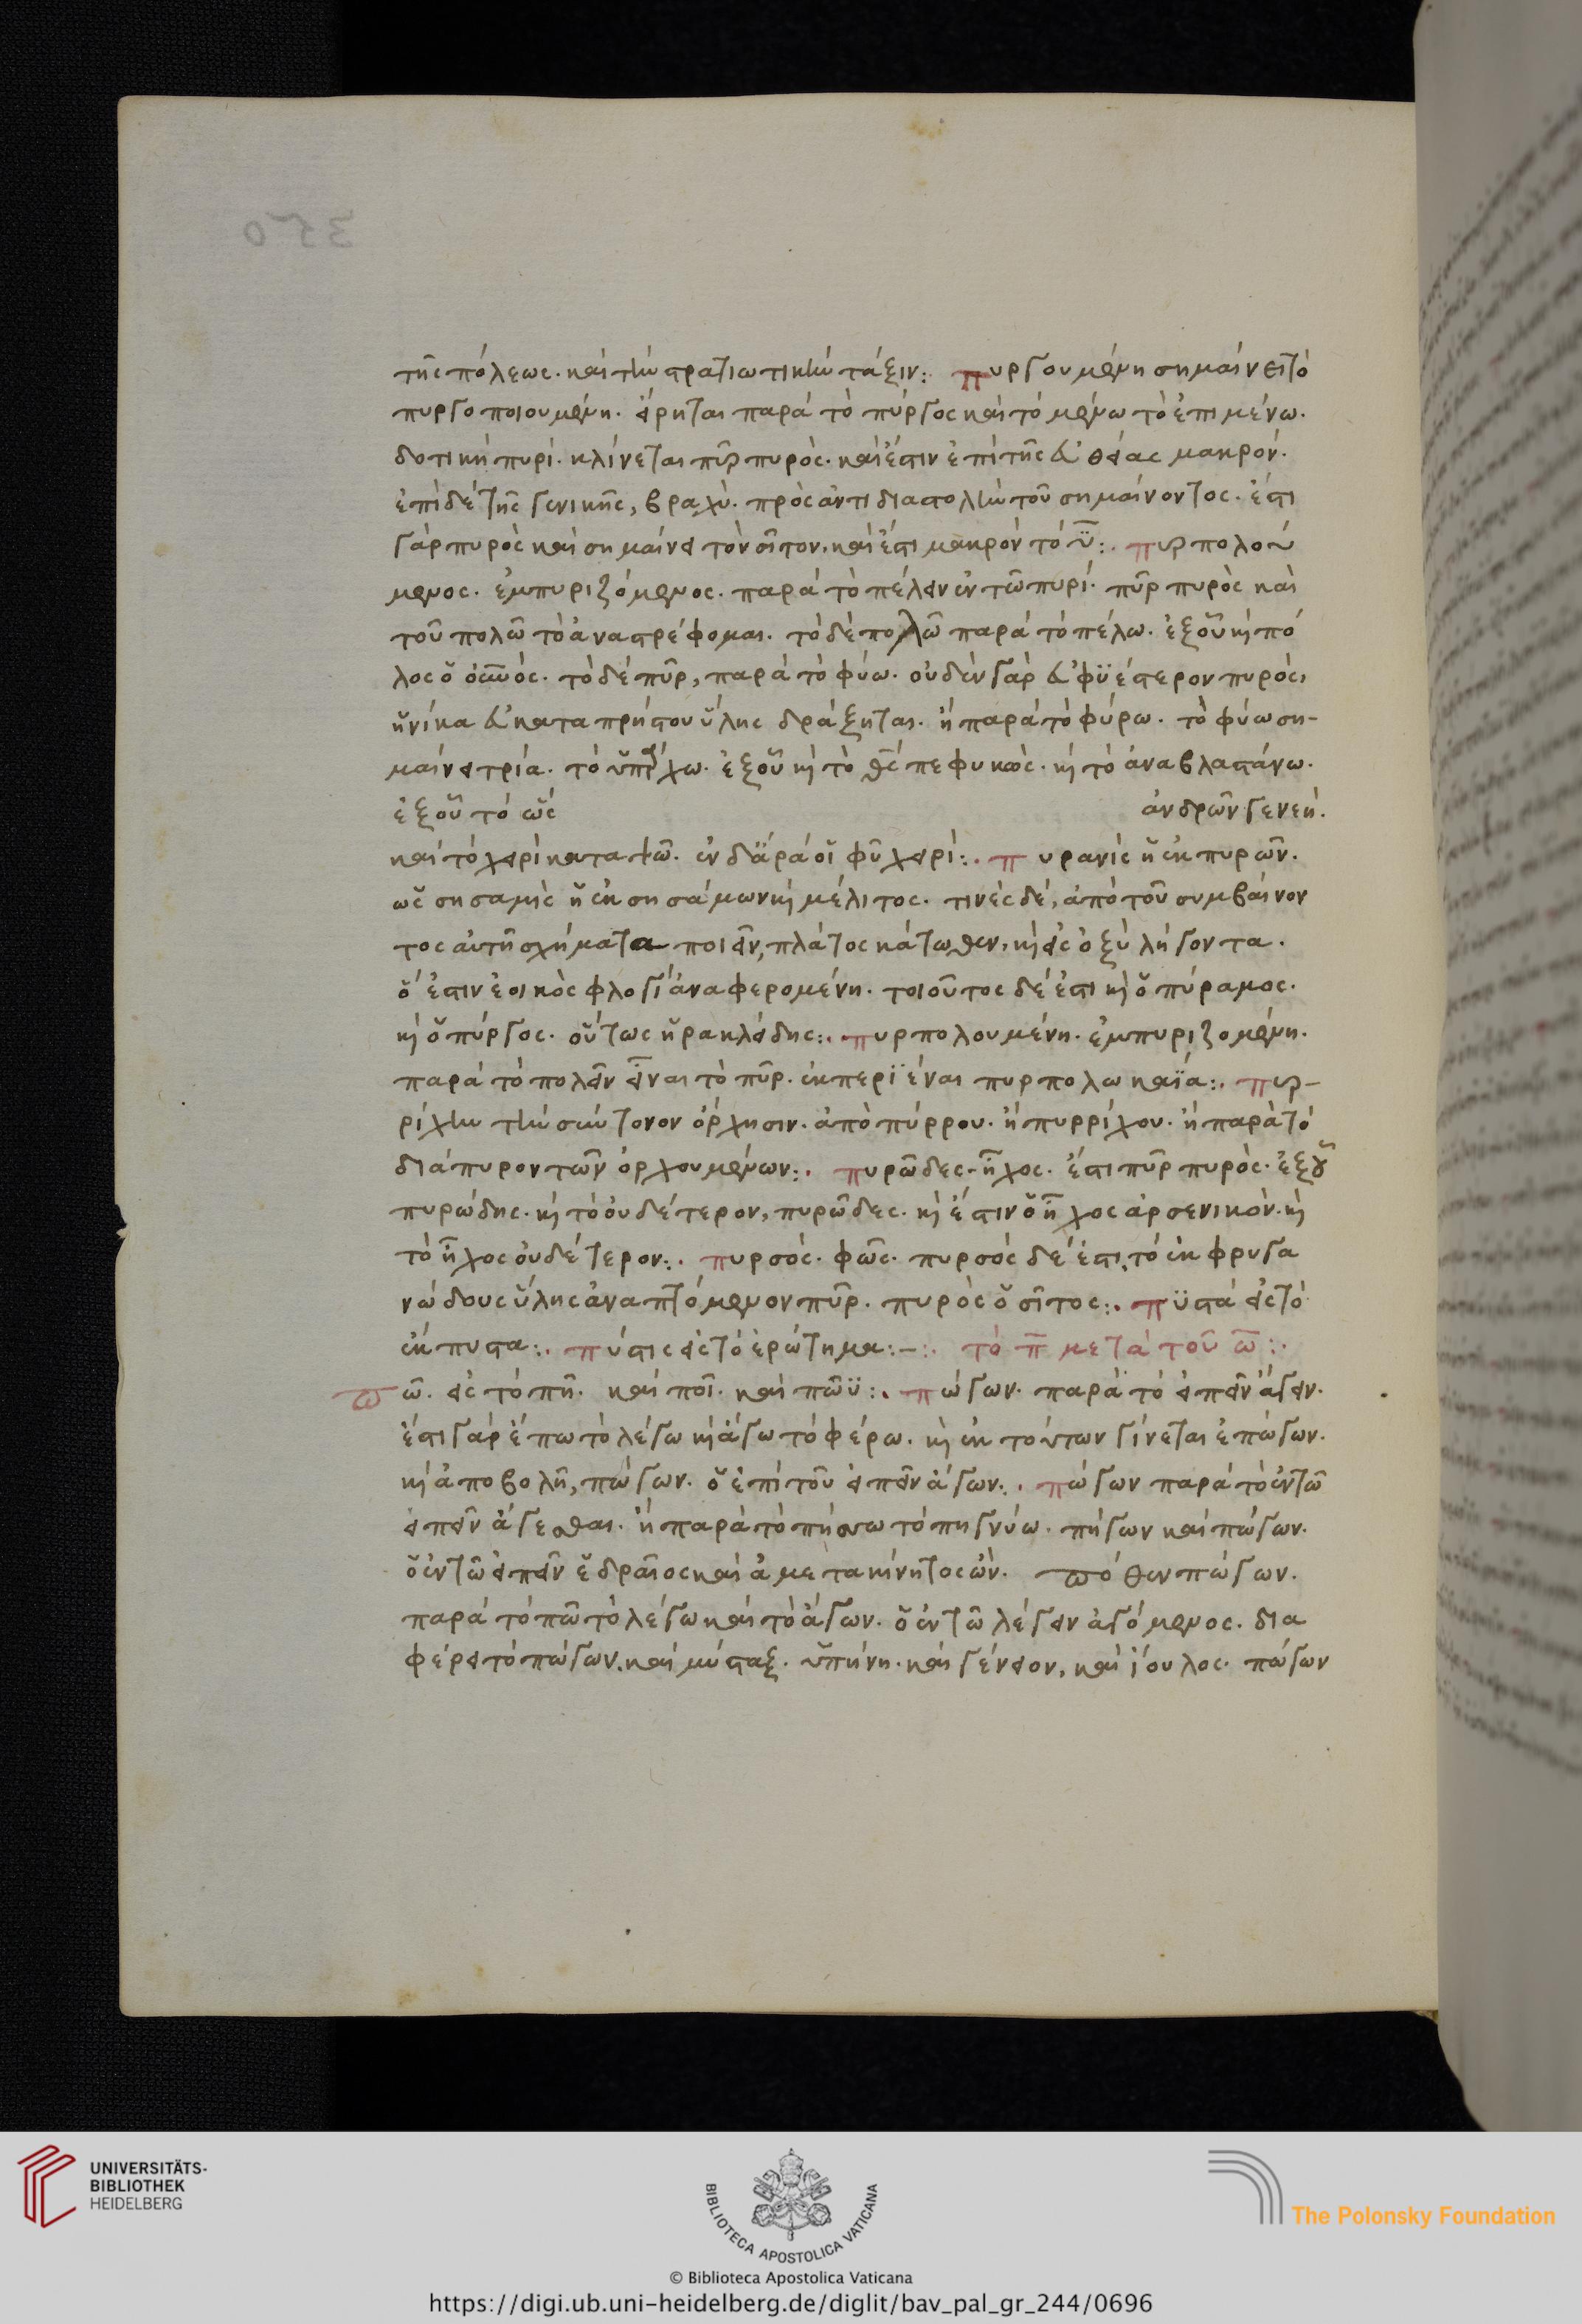 τῆς πόλεως. καὶ τὴν στρατιωτικὴν τάξιν:. πυργουμένη σημαίνει τὸ
πυργοποιουμένη. εἴρηται παρὰ τὸ πύργος καὶ τὸ μένω τὸ ἐπιμένω.
δοτικὴ πυρί. κλίνεται πῦρ πυρός. καὶ ἔστιν ἐπὶ τῆς εὐθείας μακρόν.
ἐπὶ δὲ τῆς γενικῆς, βραχύ. πρὸς ἀντιδιαστολὴν τοῦ σημαίνοντος. ἔστι
γὰρ πυρὸς καὶ σημαίνει τὸν σῖτον. καὶ ἔστι μακρὸν τὸ υ:. πυρπολού
μενος. ἐμπυριζόμενος. παρὰ τὸ πέλειν ἐν τῶ πυρί. πῦρ πυρὸς καὶ
τοῦ πολῶ τὸ ἀναστρέφομαι. τὸ δὲ πολῶ παρὰ τὸ πέλω. ἐξ οὗ κὶ πό
λος ὁ οὐνός. τὸ δὲ πῦρ, παρὰ τὸ φύω. οὐδὲν γὰρ εὐφϋέστερον πυρός,
ἡνίκα εὐκαταπρήστου ὕλης δράξηται. ἢ παρὰ τὸ φύρω. τὸ φύω ση-
μαίνει τρία. τὸ ὑπάρχω. ἐξ οὗ κὶ τὸ πεφυκώς. κὶ τὸ ἀναβλαστάνω.
ἐξ οὗ τὸ ὡς ἀνδρῶν γενεή.
καὶ τὸ χειρὶ ἐν δ' ἄρα οἱ φῦ χειρί:. πυραμὶς ἡ ἐκ πυρῶν.
ὡς σησαμὶς ἡ ἐκ σησάμων κὶ μέλιτος. τινὲς δὲ, ἀπὸ τοῦ συμβαίνον
τος αὐτῆ σχήματα ποιεῖν, πλάτος κάτωθεν, κὶ εἰς ὀξὺ λήγοντα.
ὅ ἐστιν ἐοικὸς φλογὶ ἀναφερομένη. τοιοῦτος δέ ἐστι κὶ ὁ πύραμος.
κὶ ὁ πύργος. οὕτως ἡρακλείδης:. πυρπολουμένη. ἐμπυριζομένη.
παρὰ τὸ πολεῖν εἶναι τὸ πῦρ. ἐκπεριϊέναι πυρπολω καϊα:. πυρ-
ρίχην τὴν σύντονον ὄρχησιν. ἀπὸ πύρρου. ἢ πυρρίχου. ἢ παρὰ τὸ
διάπυρον τῶν ὀρχουμένων:. πυρῶδες ἦχος. ἔστι πῦρ πυρός. ἐξ οὗ
πυρώδης. κὶ τὸ οὐδέτερον, πυρῶδες. κὶ ἔστιν ὁ ἦχος ἀρσενικὸν. κὶ
τὸ ἦχος οὐδέτερον:. πυρσός. φῶς. πυρσὸς δέ ἐστι, τὸ ἐκ φρυγα
νώδους ὕλης ἀναπτόμενον πῦρ. πυρὸς ὁ σῖτος:. πϋστά εἰς τὸ
ἔκπυστα:. πύστις εἰς τὸ ἐρώτημα:-:. τὸ π μετὰ τοῦ ω:.
πῶ. εἰς τὸ πῆ. καὶ ποῖ. καὶ πῶϋ:. πώγων. παρὰ τὸ εἰπεῖν ἄγειν.
ἔστι γὰρ ἔπω τὸ λέγω κὶ ἄγω τὸ φέρω. κὶ ἐκ τούτων γίνεται ἐπώγων.
κὶ ἀποβολῆ, πώγων. ὁ ἐπὶ τοῦ εἰπεῖν ἄγων:. πώγων παρὰ τὸ ἐν τῶ
εἰπεῖν ἄγεσθαι. ἢ παρὰ τὸ πήσσω τὸ πηγνύω. πήγων καὶ πώγων.
ὁ ἐν τῶ εἰπεῖν ἑδραῖος καὶ ἀμετακίνητος ὤν. πόθεν πώγων.
παρὰ τὸ πῶ τὸ λέγω καὶ τὸ ἄγων. ὁ ἐν τῶ λέγειν ἀγόμενος. δια
φέρει τὸ πώγων. καὶ μύσταξ. ὑπήνη. καὶ γένειον, καὶ ἴουλος. πώγων
UNIVERSITÄTS-
BIBLIOTHEK
HEIDELBERG
BIBLIOTECA APOSTOLICA VATICANA
The Polonsky Foundation
© Biblioteca Apostolica Vaticana
https://digi.ub.uni-heidelberg.de/diglit/bav_pal_gr_244/0696